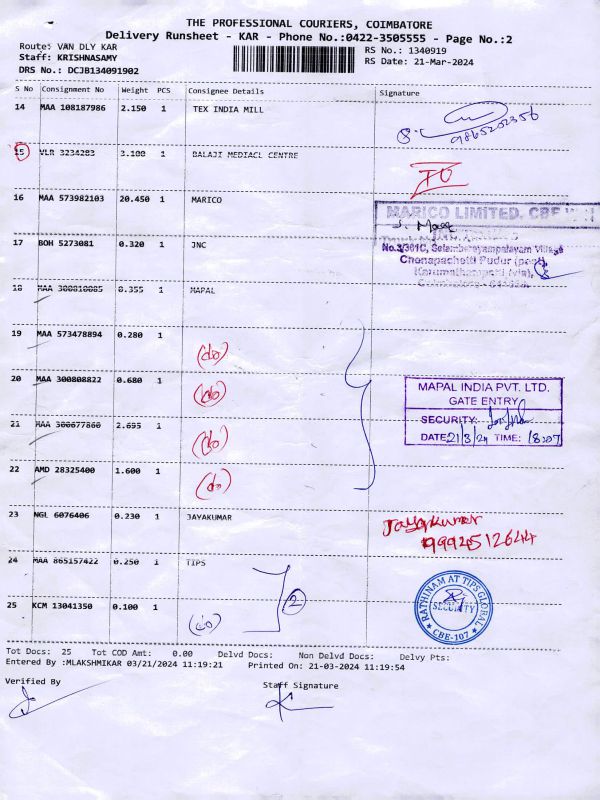 THE PROFESSIONAL COURIERS, COIMBATORE
Delivery Runsheet - KAR - Phone No.:0422-3505555 - Page No.:2
Route: VAN DLY KAR
RS No.: 1340919
Staff: KRISHNASAMY
RS Date: 21-Mar-2024
DRS No.: DCJB134091902
S No Consignment No Weight PCS Consignee Details Signature
14 MAA 108187986 2.150 1 TEX INDIA MILL
9865202356
15 VLR 3234283 3.100 1 BALAJI MEDIACL CENTRE
16 MAA 573982103 20.450 1 MARICO
MARICO LIMITED, CBE
No.3/301C, Selambarayampalayam Village
Chenapachetti Pudur (post)
Karumathampatti (via),
17 BOH 5273081 0.320 1 JNC
18 MAA 300810085 0.355 1 MAPAL
19 MAA 573478894 0.280 1 (do)
20 MAA 300808822 0.680 1 (do)
MAPAL INDIA PVT. LTD.
GATE ENTRY
SECURITY:
DATE: 21/3/24 TIME: 18:07
21 MAA 300677860 2.695 1 (do)
22 AMD 28325400 1.600 1 (do)
23 NGL 6076406 0.230 1 JAYAKUMAR
Jayakumar
9992512644
24 MAA 865157422 0.250 1 TIPS
2
RATHINAM AT TIPS GLOBAL
SECURITY
CBE-107
25 KCM 13041350 0.100 1 (do)
Tot Docs: 25 Tot COD Amt: 0.00 Delvd Docs: Non Delvd Docs: Delvy Pts:
Entered By :MLAKSHMIKAR 03/21/2024 11:19:21 Printed On: 21-03-2024 11:19:54
Verified By
Staff Signature